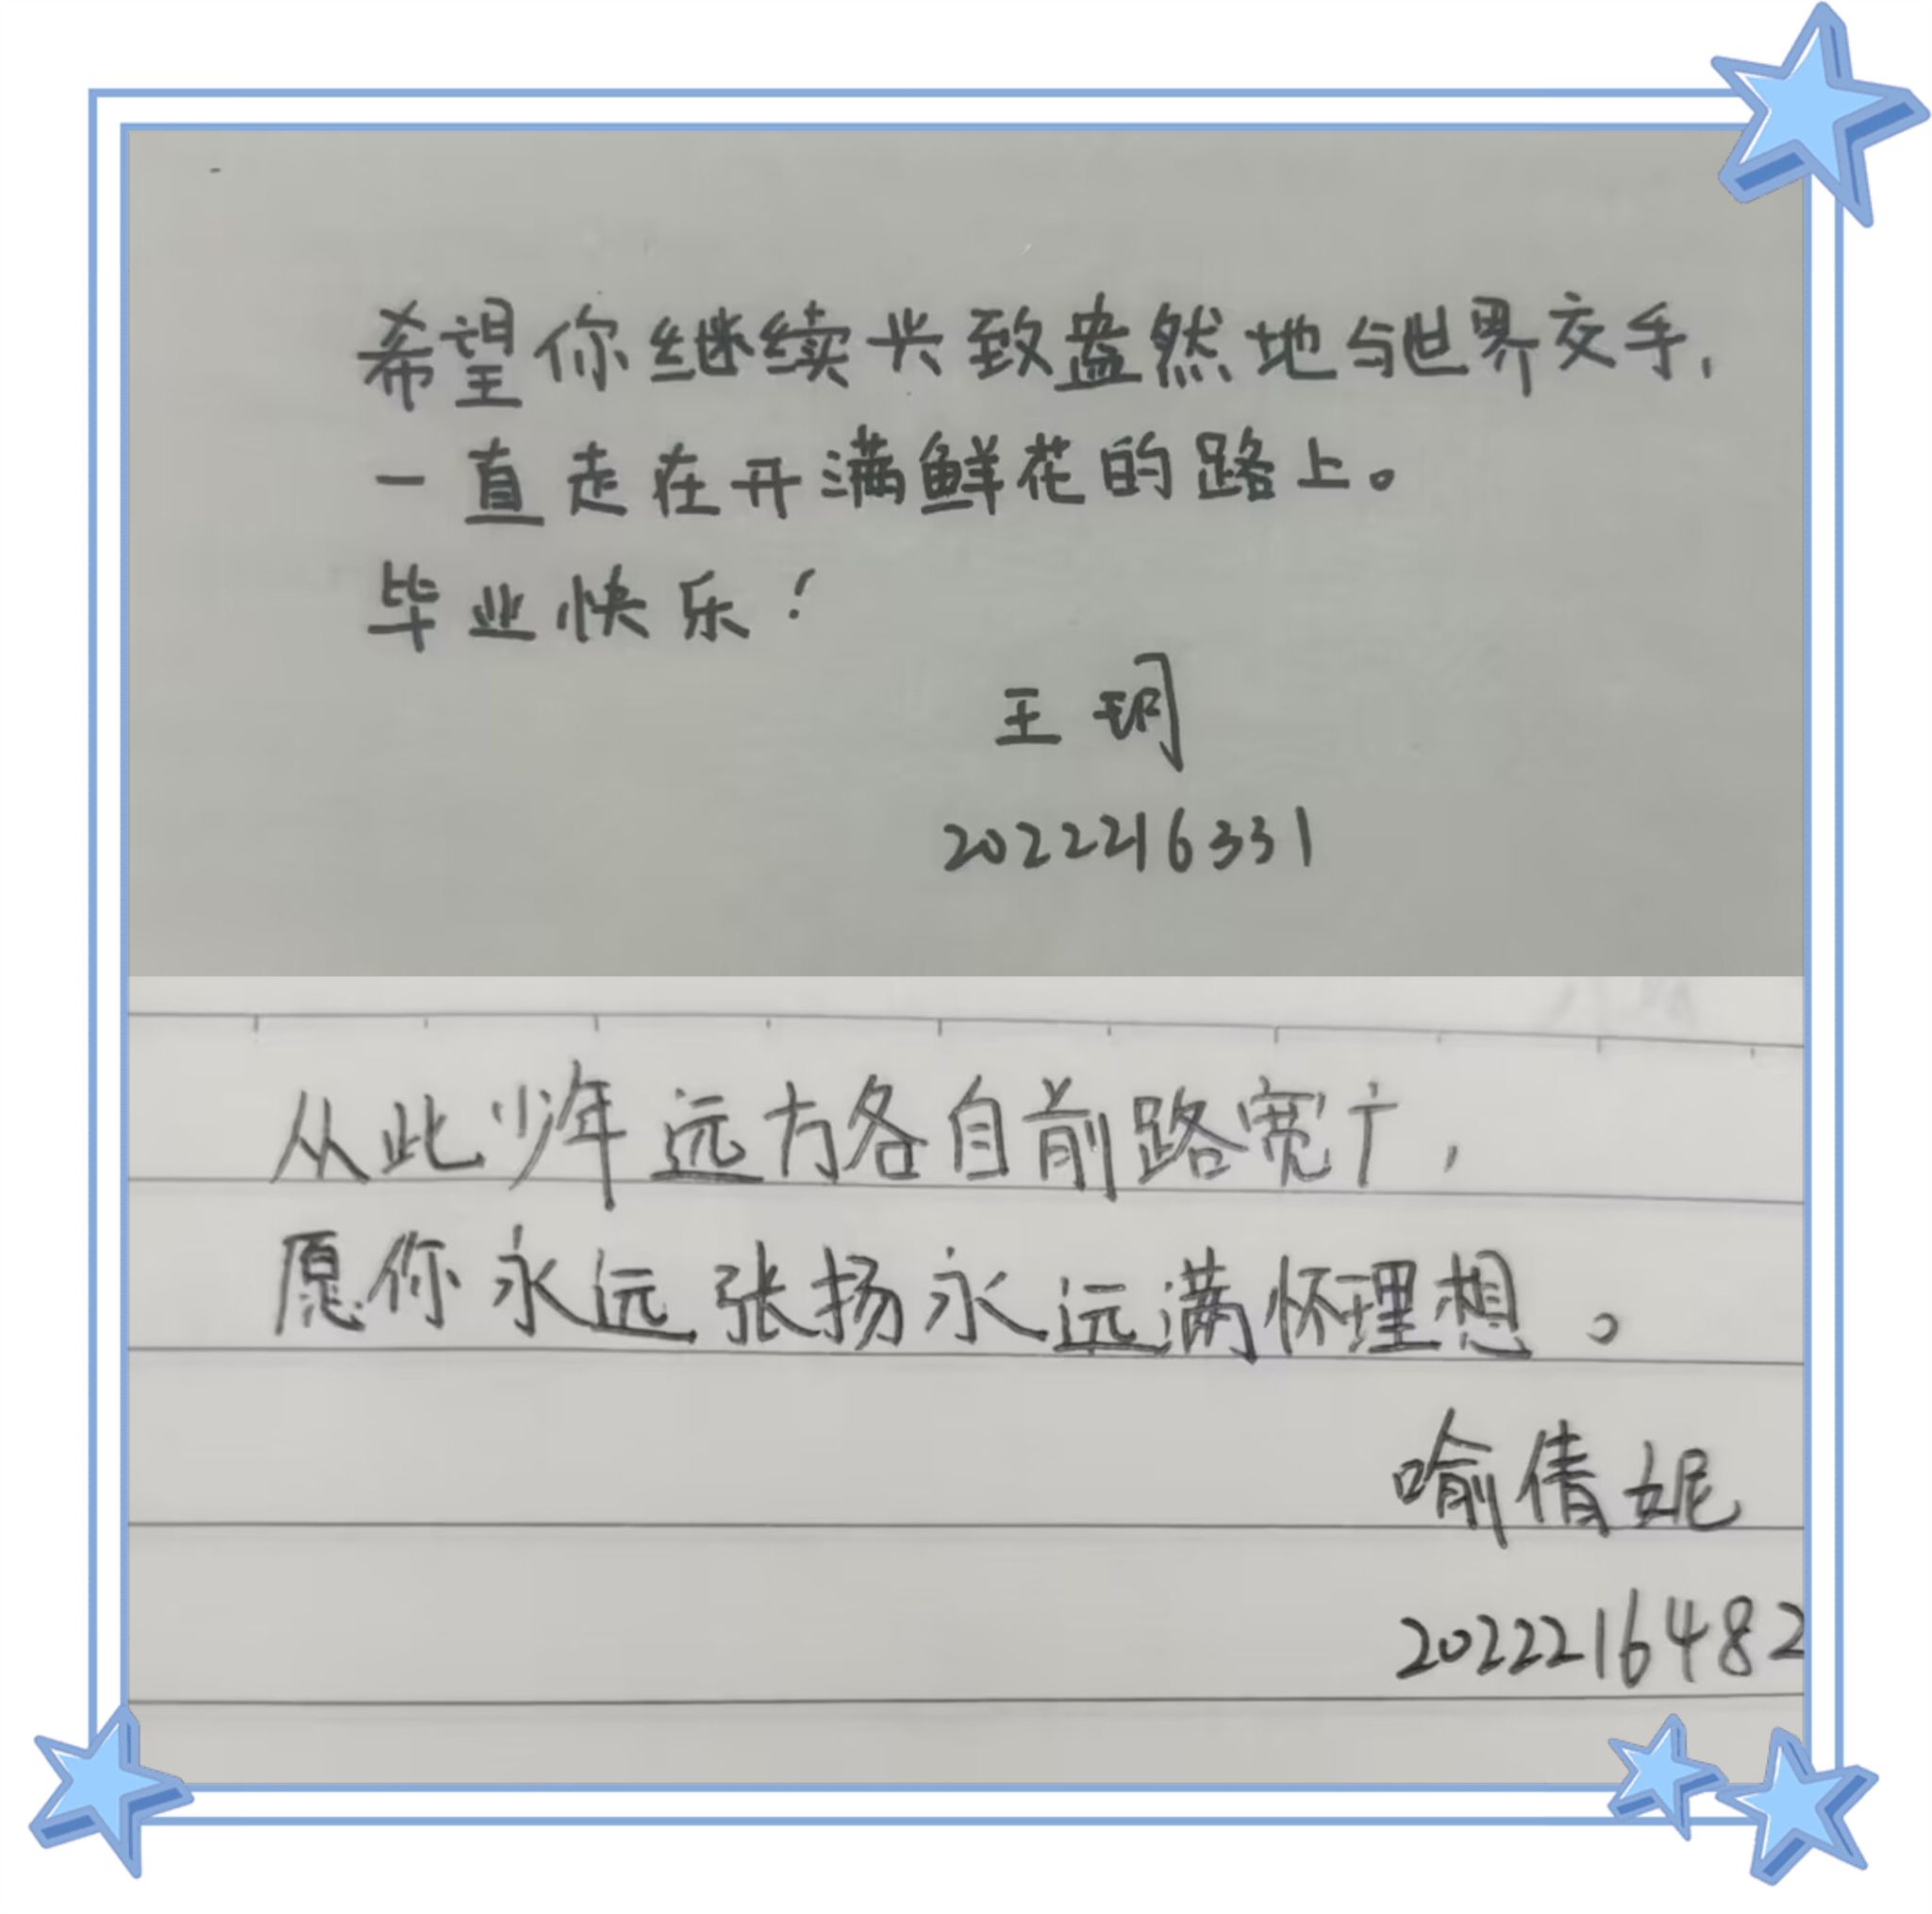 希望你继续兴致盎然地与世界交手，
一直走在开满鲜花的路上。
毕业快乐！
王玥
2022216331
从此少年远方各自前路宽广，
愿你永远张扬永远满怀理想。
喻倩妮
2022216482